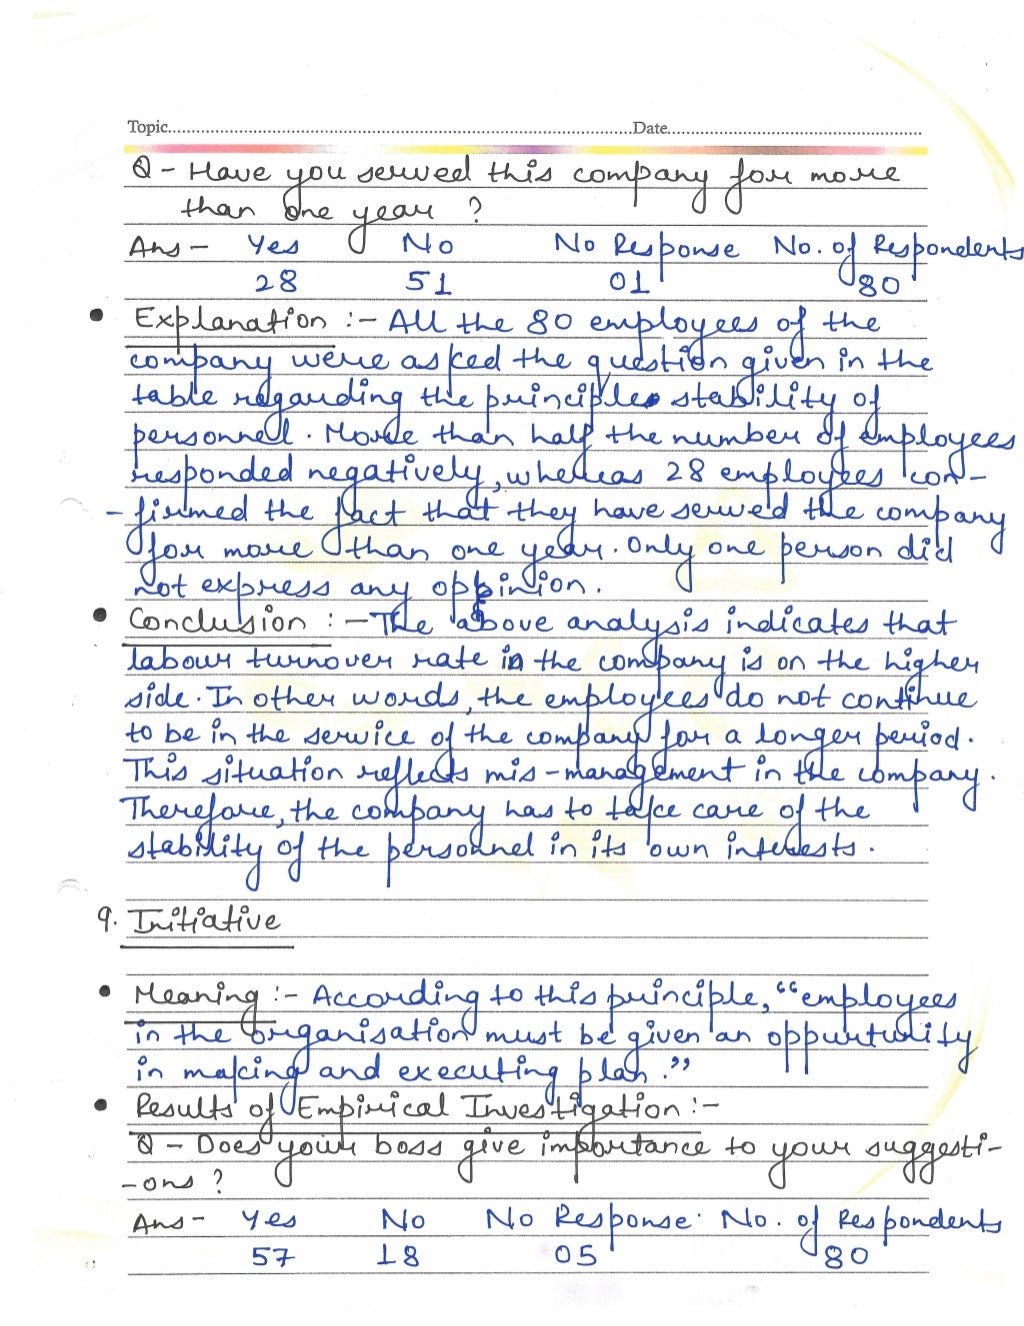 Topic........................Date........................
Q - Have you served this company for more
than one year ?
Ans - Yes No No Response No. of Respondents
28 51 01 80
• Explanation :- All the 80 employees of the
company were asked the question given in the
table regarding the principle stability of
personnel. More than half the number of employees
responded negatively, whereas 28 employees con-
- firmed the fact that they have served the company
for more than one year. Only one person did
not express any oppinion.
• Conclusion :- The above analysis indicates that
labour turnover rate in the company is on the higher
side. In other words, the employees do not continue
to be in the service of the company for a longer period.
This situation reflects mis-management in the company.
Therefore, the company has to take care of the
stability of the personnel in its own interests.
9. Initiative
• Meaning :- According to this principle, "employees
in the organisation must be given an oppurtunity
in making and executing plan."
• Results of Empirical Investigation :-
Q - Does your boss give importance to your suggesti-
-ons ?
Ans - Yes No No Response. No. of Respondents
57 18 05 80